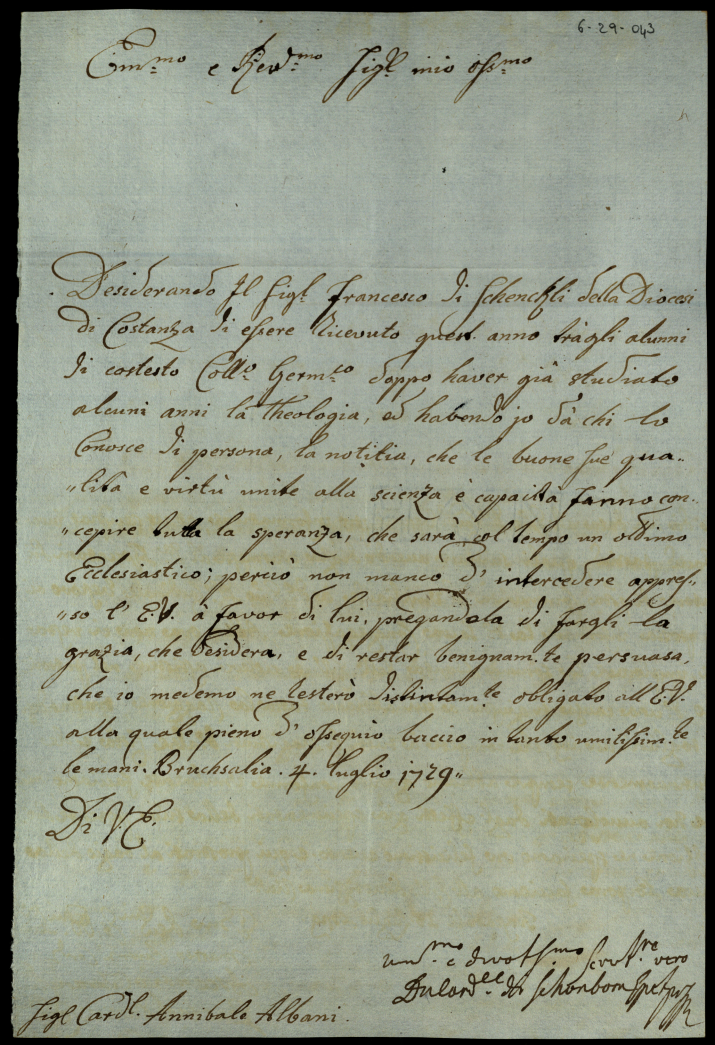 6-29-043
Em.mo e Rev.mo Sig.r mio oss.mo
Desiderando Il Sig.r Francesco di Schenckli della Diocesi
di Costanza di essere ricevuto quest. anno tràgli alunni
di cotesto Coll.o Germ.co doppo haver già studiato
alcuni anni la theologia, ed habendo jo dà chi lo
Conosce di persona, la notitia, che le buone sue qua-
"lità e virtù unite alla scienza è capacità fanno con-
"cepire tutta la speranza, che sarà col tempo un ottimo
Ecclesiastico; perciò non manco d' intercedere appres-
"so l' E.V. à favor di lui, pregandola di fargli la
grazia, che desidera, e di restar benignam.te persuasa,
che io medemo ne resterò distintam.te obligato all' E.V.
alla quale pieno d' ossequio baccio in tanto umilissim.te
le mani. Bruchsalia. 4. luglio 1729"
Di V.E.
um.mo e divot.mo servit.re vero
Card.le di Schonborn
Sig.r Card.l Annibale Albani.